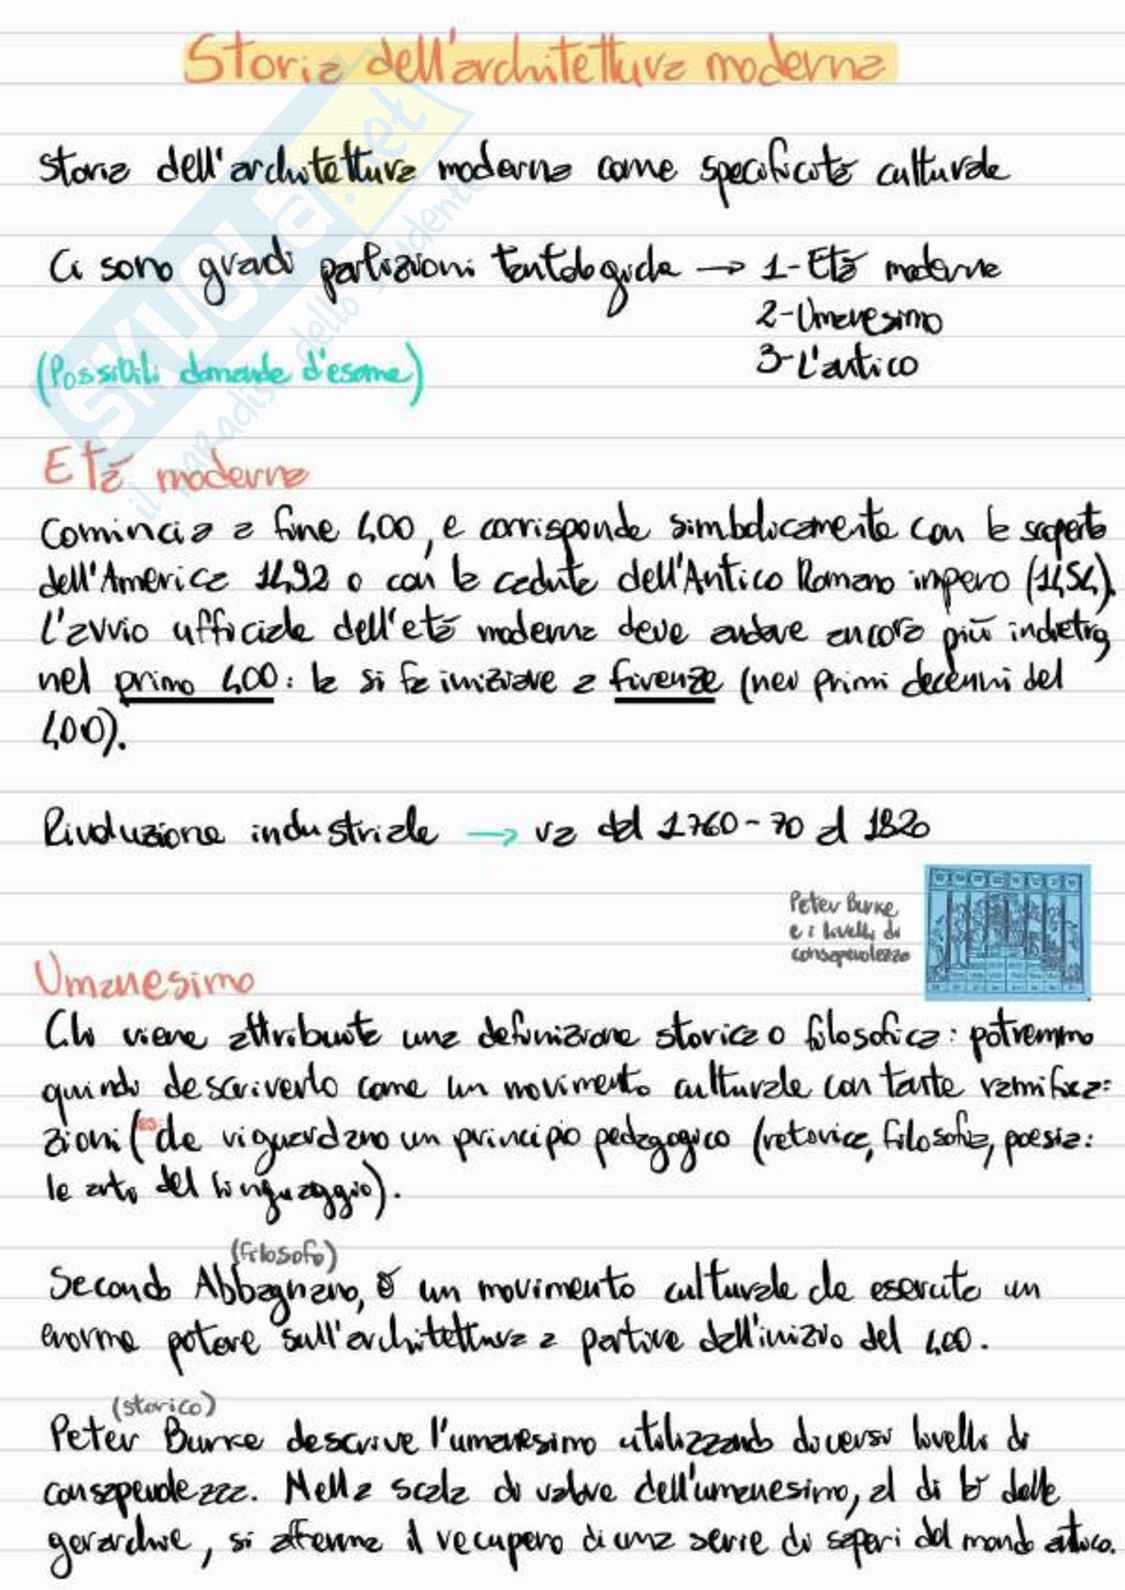 Storia dell'architettura moderna
Storia dell'architettura moderna come specificità culturale
Ci sono gradi partizioni → 1-Età moderna
2-Umanesimo
3-L'antico
(Possibili domande d'esame)
Età moderna
Comincia a fine 400, e corrisponde simbolicamente con la scoperta
dell'America 1492 o con la caduta dell'Antico Romano impero (1454).
L'avvio ufficiale dell'età moderna deve andare ancora più indietro,
nel primo 400: la si fa iniziare a firenze (nei primi decenni del
400).
Rivoluzione industriale → va dal 1760-70 al 1820
Peter Burke
e i livelli di
consapevolezza
Umanesimo
Chi viene attribuita una definizione storica o filosofica: potremmo
quindi descriverlo come un movimento culturale con tante ramifica=
zioni (es che riguardano un principio pedagogico (retorica, filosofia, poesia:
le arti del linguaggio).
(filosofo)
Secondo Abbagnano, è un movimento culturale che esercita un
enorme potere sull'architettura a partire dall'inizio del 400.
(storico)
Peter Burke descrive l'umanesimo utilizzando diversi livelli di
consapevolezza. Nella scala di valore dell'umanesimo, al di là delle
gerarchie, si afferma il recupero di una serie di saperi del mondo antico.
SKUOLA.net
il paradiso dello studente